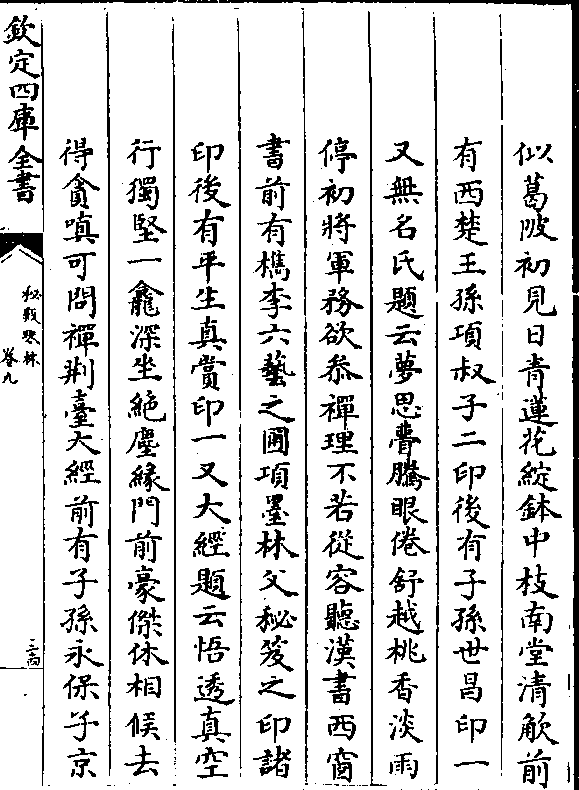 似葛陂初見日青蓮花綻鉢中枝南堂清觮前
有西楚王孫項叔子二印後有子孫世昌印一
又無名氏題云夢思瞢騰眼倦舒越桃香淡雨
停初將軍務欲叅禪理不若從容聽漢書西窗
書前有檇李六藝之圃項墨林父秘笈之印諸
印後有平生真賞印一又大經題云悟透真空
行獨堅一龕深坐絶塵縁門前豪傑休相候去
得貪嗔可問禪荆臺大經前有子孫永保予京
欽定四庫全書
秘殿珠林
卷九
三十四